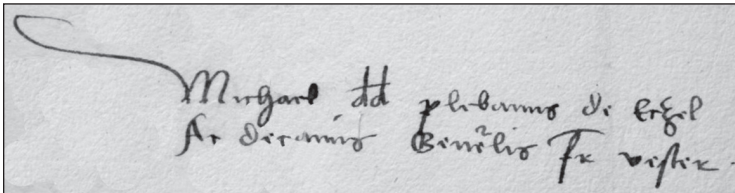 Michael dd plebanus de Eczel
Ac decanus Gen̄elis Fr vester.